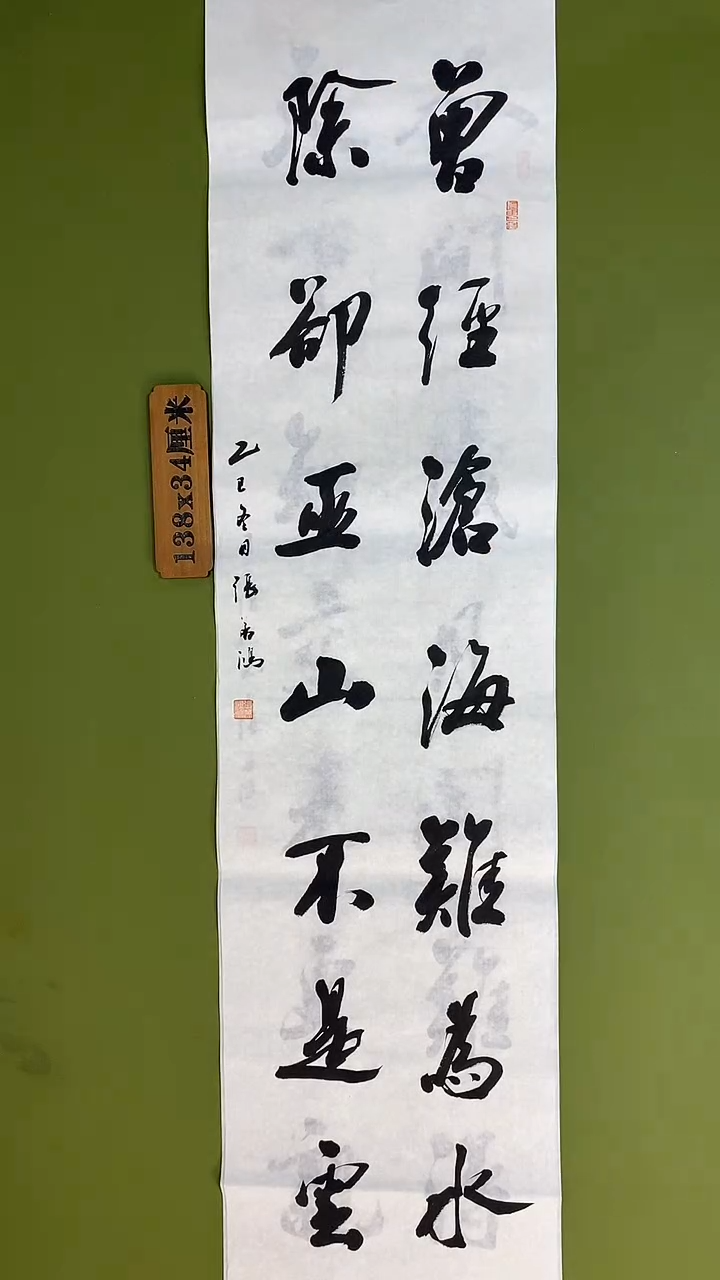 曾經滄海難為水
除卻巫山不是雲
乙巳冬日張
138x34厘米